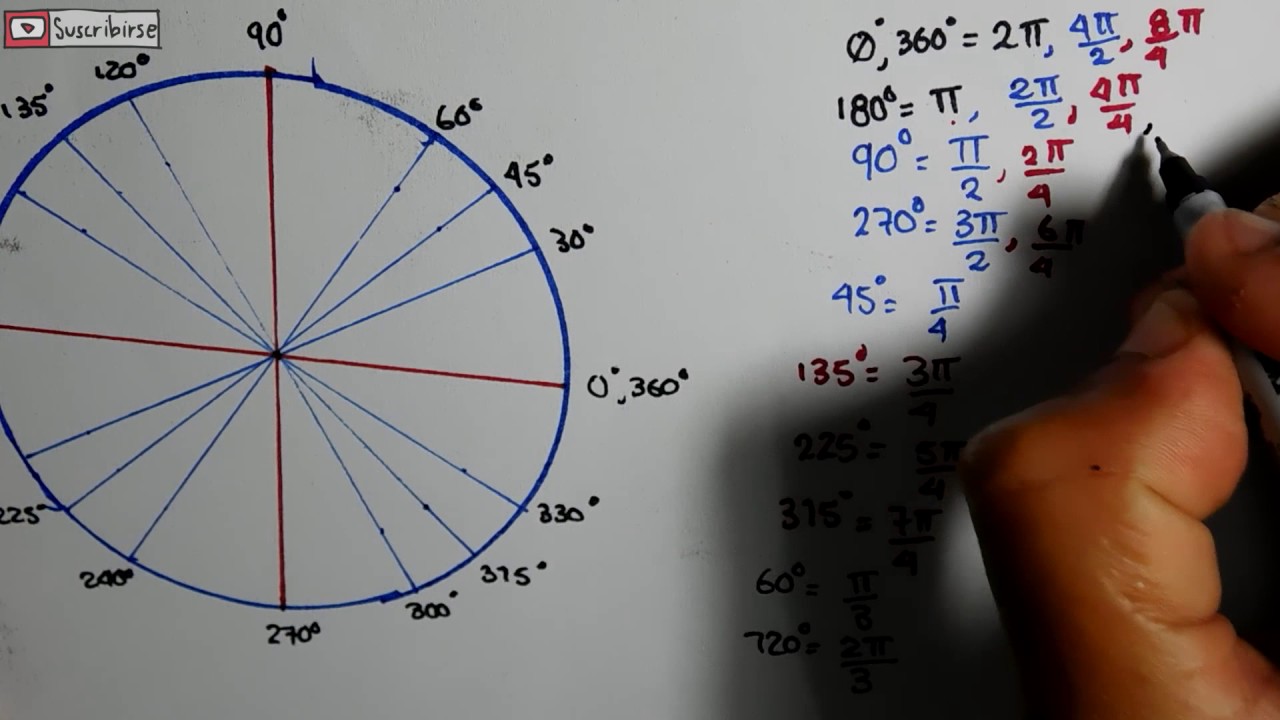 Suscribirse
90°
120°
135°
60°
45°
30°
0°, 360°
225°
330°
315°
240°
300°
270°
0°, 360° = 2π, 4π/2, 8π/4
180° = π, 2π/2, 4π/4,
90° = π/2, 2π/4
270° = 3π/2, 6π/4
45° = π/4
135° = 3π/4
225° = 5π/4
315° = 7π/4
60° = π/3
120° = 2π/3